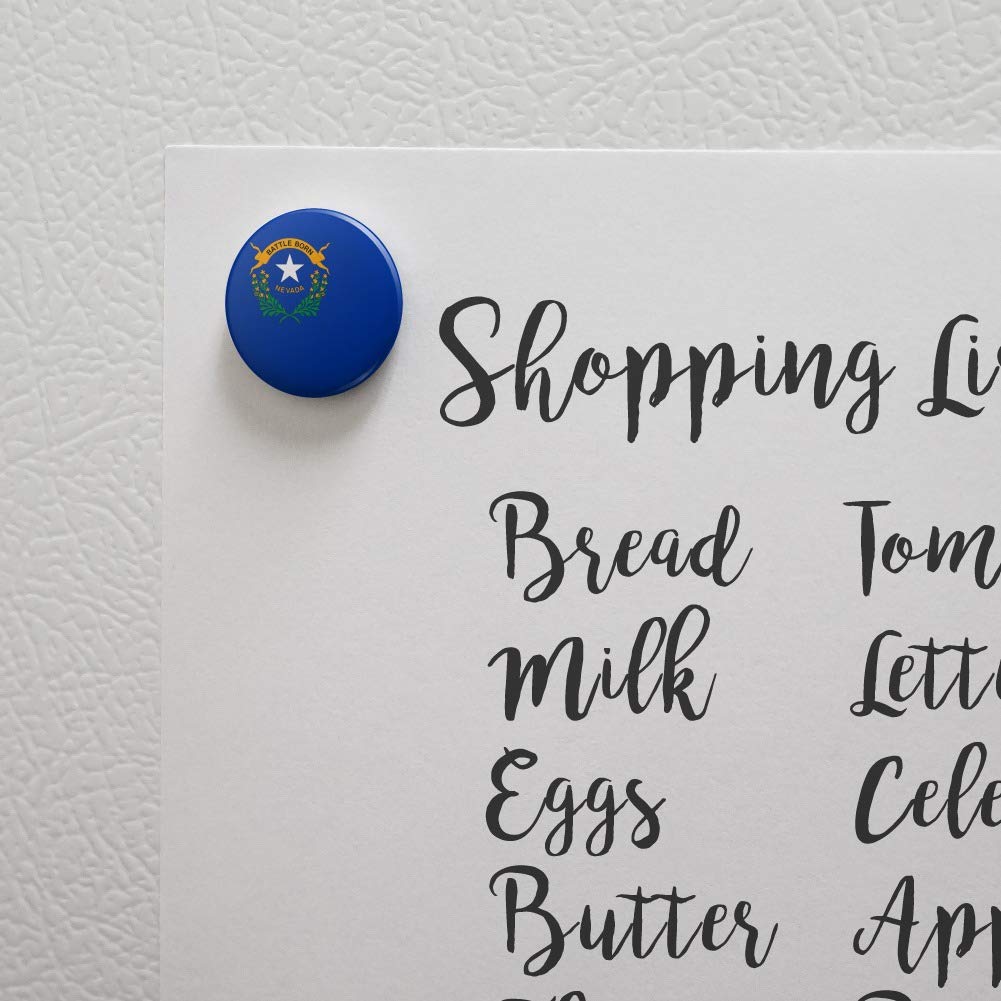 BATTLE BORN
NEVADA
Shopping Li
Bread Tom
Milk Lett
Eggs Cele
Butter App